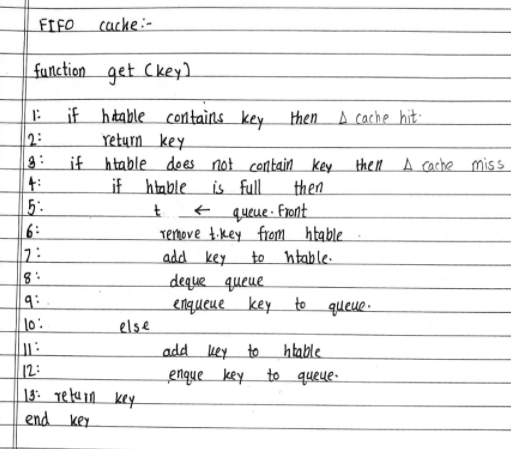 FIFO cache:-
function get (key)
1: if htable contains key then Δ cache hit.
2: return key
3: if htable does not contain key then Δ cache miss
4: if htable is full then
5: t ← queue.Front
6: remove t.key from htable
7: add key to htable.
8: deque queue
9: enqueue key to queue.
10: else
11: add key to htable
12: enque key to queue.
13: return key
end key